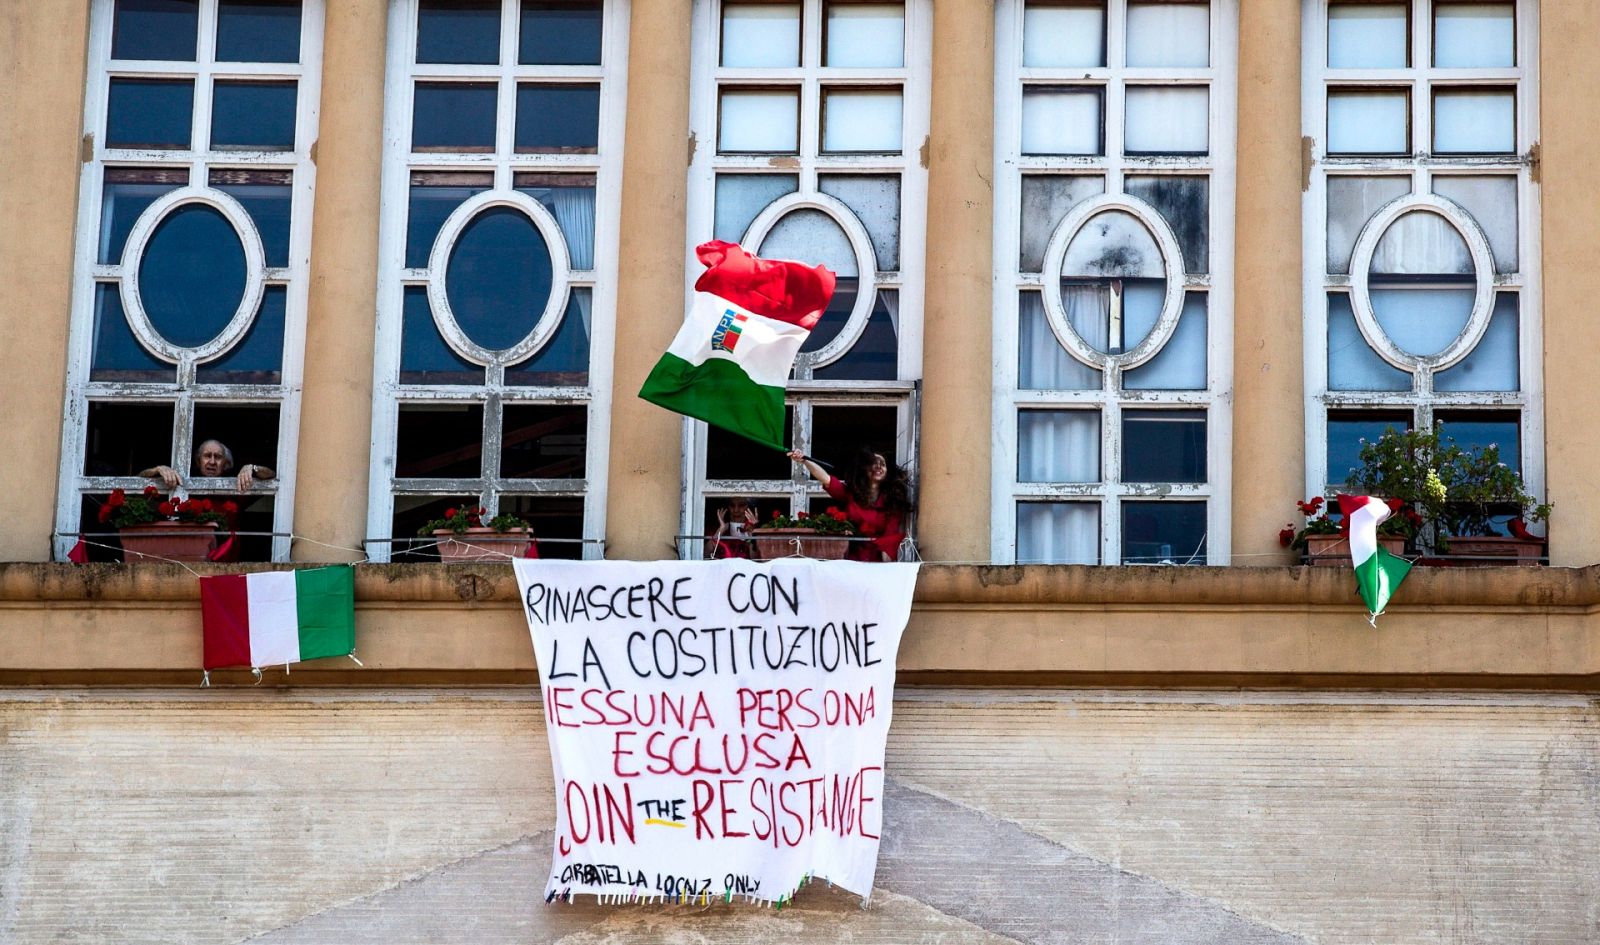 A.N.P.I.
RINASCERE CON
LA COSTITUZIONE
NESSUNA PERSONA
ESCLUSA
JOIN THE RESISTANCE
GARBATELLA LOCALZ ONLY